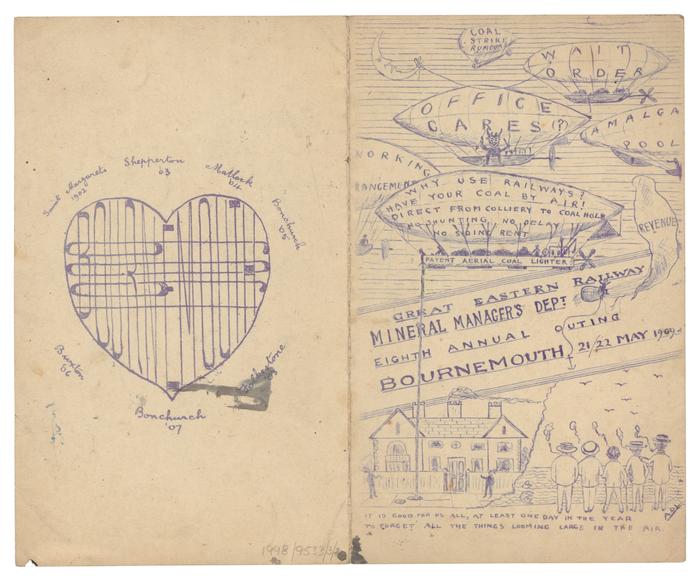 Saint Margarets
1902
Shepperton
'03
Matlock
'04
Bonchurch
'05
Buxton
'06
Folkestone
Bonchurch
'07
1998/9533/3
COAL
STRIKE
RUMOUR
WAIT
ORDER
OFFICE
CARES (?)
AMALGA
POOL
WORKING
RANGEMENT
WHY USE RAILWAYS?
HAVE YOUR COAL BY AIR!
DIRECT FROM COLLIERY TO COAL HOLE
NO SHUNTING, NO DELAY
NO SIDING RENT
PATENT AERIAL COAL LIGHTER
REVENUE
GREAT EASTERN RAILWAY
MINERAL MANAGER'S DEPT
EIGHTH ANNUAL OUTING
BOURNEMOUTH, 21/22 MAY 1909
IT IS GOOD FOR US ALL, AT LEAST ONE DAY IN THE YEAR
TO FORGET ALL THE THINGS LOOMING LARGE IN THE AIR.